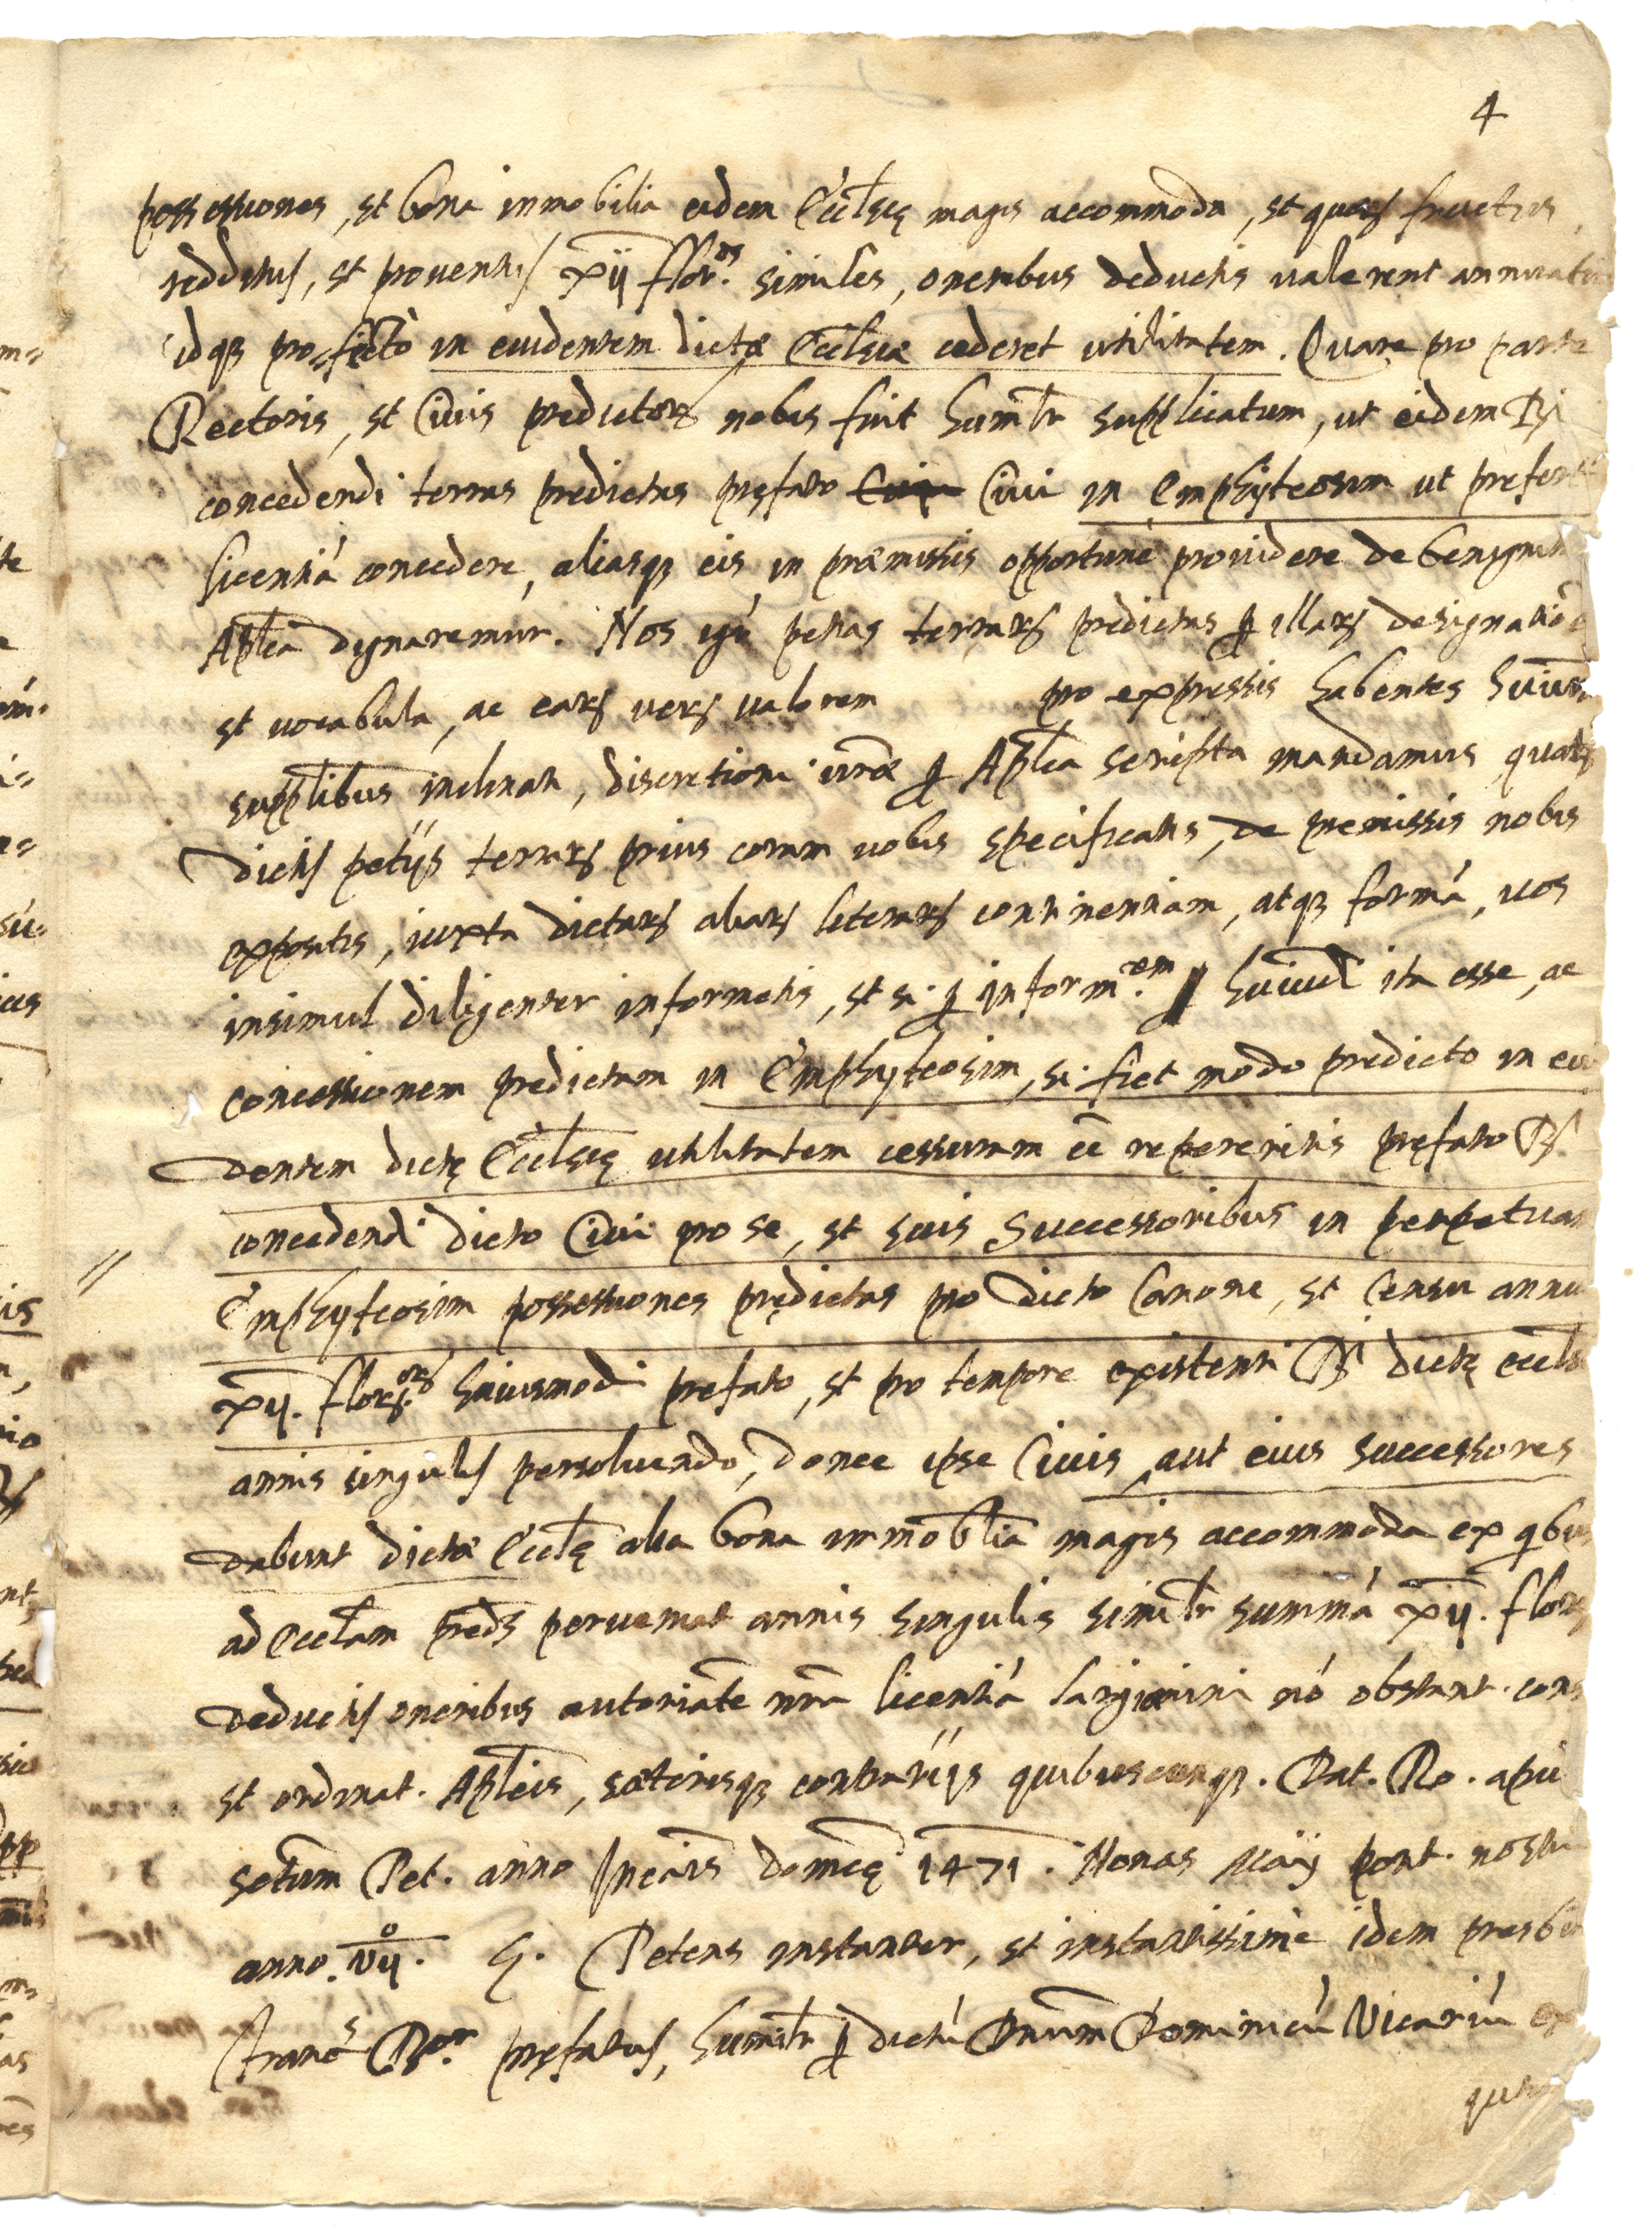 4
possessiones, et bona inmobilia eidem Eccl̃się magis accommoda, et quorũ fructus
redditus, et prouentus xij flor.os similes, oneribus deductis ualerent annuatim
idq3 profectò in euidentem dictæ Eccl̃siæ cederet utilitatem. Quare pro parte
Rectoris, et Ciuis predictorũ nobis fuit humil̃r supplicatum, ut eidem Ri
concedendi terras predictas pręfato Ciui in Emphyteosim ut prefertur
licentiá concedere, aliasq3 eis in præmissis opportunè prouidere de benignit
Apl̃ca dignaremur. Nos igr̃ petias terrarũ predictas ꝑ illarũ designatio
et uocabula, ac earũ uerũ ualorem pro expressis habentes huiusm
suppl̃ibus inclinati, discretioni ur̃æ ꝑ Apl̃ca scripta mandamus quat
dictis petijs terrarũ prius coram uobis specificatis, de premissis nobis
expositis, iuxta dictarũ aliarũ literarũ continentiam, atq3 formá, uos
insimul diligenter informetis, et si ꝑ inform.em huiusm̃ ita esse, ac
concessionem predictam in Emphyteosim, si fiet modo predicto in eui
dentem dictę Eccl̃się utilitatem cessuram eẽ repereritis pręfato R.
concedendi dicto Ciui pro se, et suis Successoribus in perpetuam
Emphyteosim possessiones prędictas pro dicto Canone, et Censu annuo
xij. florũ.orũ huiusmodi prefato, et pro tempore existenti Ri dictę eccl̃
annis singulis persoluendo, donec ipse Ciuis aut eius successores
dabunt dictæ Eccl̃ę alia bona inmobl̃ia magis accommoda ex qbus
ad Eccl̃am pred̃ perueniat annis singulis simil̃r summá xij. flor
deductis oneribus autoriatẽ nr̃a licentiá largiamini nó obstant. cons
et ordinat. Apl̃cis, cæterisq3 contrarijs quibuscunq3. Dat. Ro. apú
sctũm Pet. anno Incar̃is domcę̃ 1471. Nonas Maij pont. nostri
anno. vij.o G. Petens instanter, et instantissimè idem presbit
Franc.s Ror pręfatus, humil̃r ꝑ dictú Dnũm Dominicú Vicariú ex